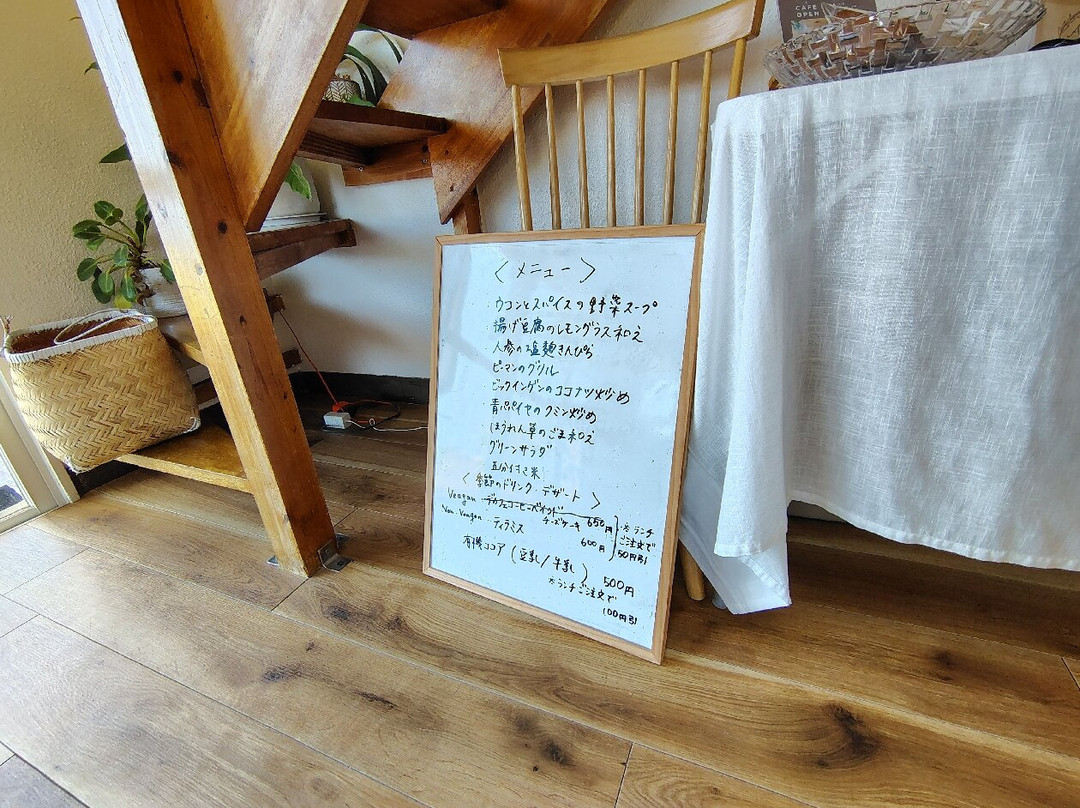 CAFE
OPEN
〈 メニュー 〉
・ウコンとスパイスの野菜スープ
・揚げ豆腐のレモングラス和え
・人参の塩麹きんぴら
・ピーマンのグリル
・ビックインゲンのココナツ炒め
・青パパイヤのクミン炒め
・ほうれん草のごま和え
・グリーンサラダ
・五分付き米
〈 季節のドリンク・デザート 〉
Veagan ・デカフェコーヒーベイクド
チーズケーキ 650円
Non.Veagan ・ティラミス 600円
※ランチ
ご注文で
50円引
有機ココア (豆乳/牛乳) 500円
※ランチご注文で
100円引